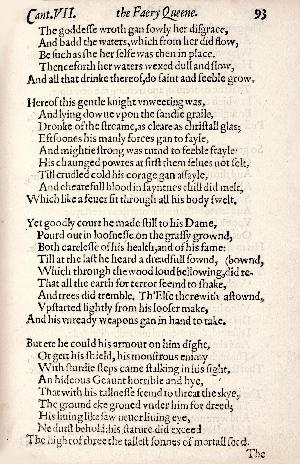 Cant. VII. the Faery Queene. 93
The goddesse wroth gan fowly her disgrace,
And badd the waters, which from her did flow,
Be such as she her selfe was then in place.
Thenceforth her waters wexed dull and slow,
And all that drinke thereof, do faint and feeble grow.
Hereof this gentle knight vnweeting was,
And lying downe vpon the sandie graile,
Dronke of the streame, as cleare as christall glas;
Eftsoones his manly forces gan to fayle,
And mightie strong was turnd to feeble frayle:
His chaunged powres at first them selues not felt,
Till crudled cold his corage gan assayle,
And chearefull blood in fayntnes chill did melt,
Which like a feuer fit through all his body swelt.
Yet goodly court he made still to his Dame,
Pourd out in loosnesse on the grassy grownd,
Both carelesse of his health, and of his fame:
Till at the last he heard a dreadfull sownd, (bownd,
Which through the wood loud bellowing, did re-
That all the earth for terror seemd to shake,
And trees did tremble. Th'Elfe therewith astownd,
Vpstarted lightly from his looser make,
And his vnready weapons gan in hand to take.
But ere he could his armour on him dight,
Or gett his shield, his monstrous enimy
With sturdie steps came stalking in his sight,
An hideous Geaunt horrible and hye,
That with his tallnesse seemd to threat the skye,
The ground eke groned vnder him for dreed;
His liuing like saw neuer liuing eye,
Ne durst behold: his stature did exceed
The hight of three the tallest sonnes of mortall seed.
The